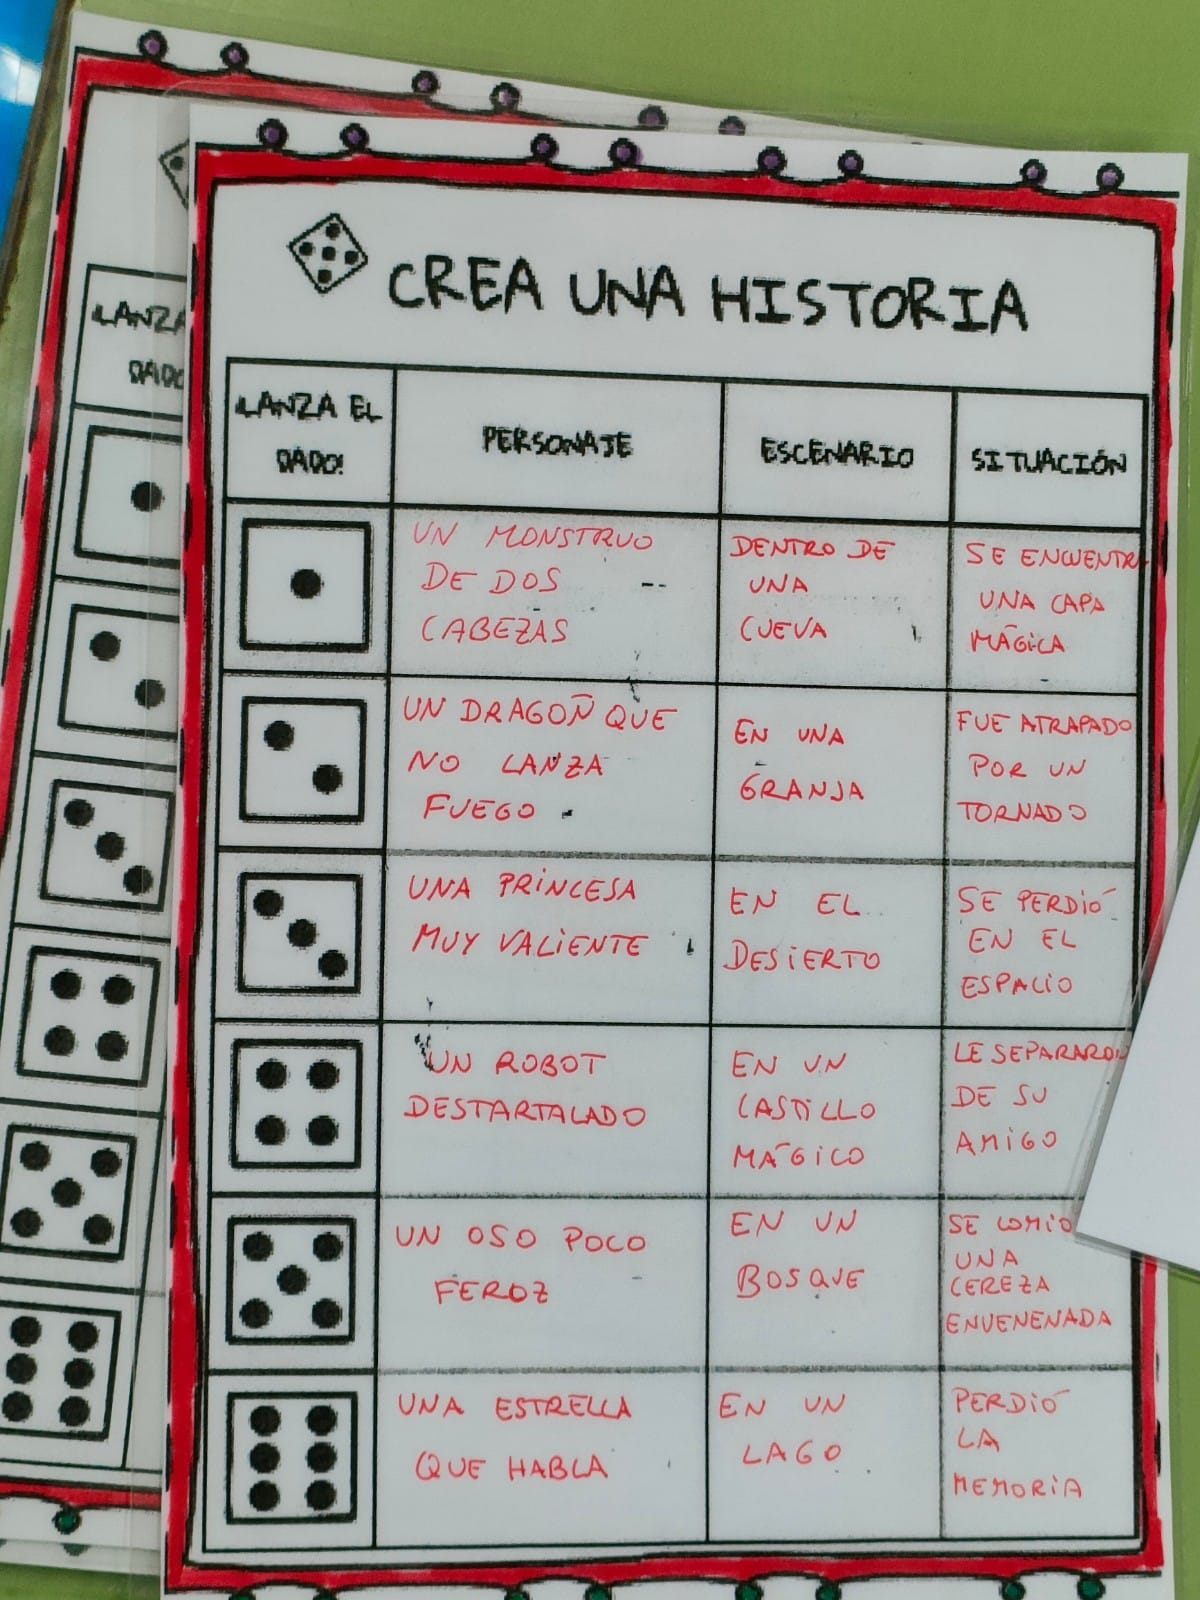 CREA UNA HISTORIA
¡LANZA EL
DADO!
PERSONAJE
ESCENARIO
SITUACIÓN
UN MONSTRUO
DE DOS
CABEZAS
DENTRO DE
UNA
CUEVA
SE ENCUENTRA
UNA CAPA
MÁGICA
UN DRAGON QUE
NO LANZA
FUEGO
EN UNA
GRANJA
FUE ATRAPADO
POR UN
TORNADO
UNA PRINCESA
MUY VALIENTE
EN EL
DESIERTO
SE PERDIÓ
EN EL
ESPACIO
UN ROBOT
DESTARTALADO
EN UN
CASTILLO
MÁGICO
LE SEPARARON
DE SU
AMIGO
UN OSO POCO
FEROZ
EN UN
BOSQUE
SE COMIO
UNA
CEREZA
ENVENENADA
UNA ESTRELLA
QUE HABLA
EN UN
LAGO
PERDIÓ
LA
MEMORIA
¡LANZA
DADO